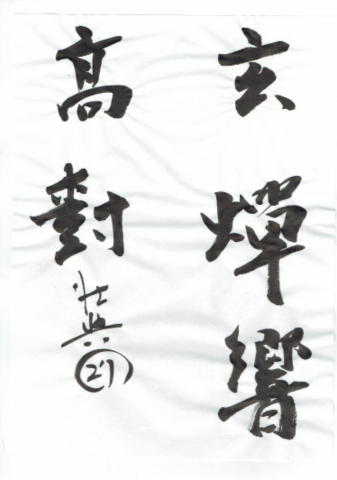 玄燁響
高對
壯典
21